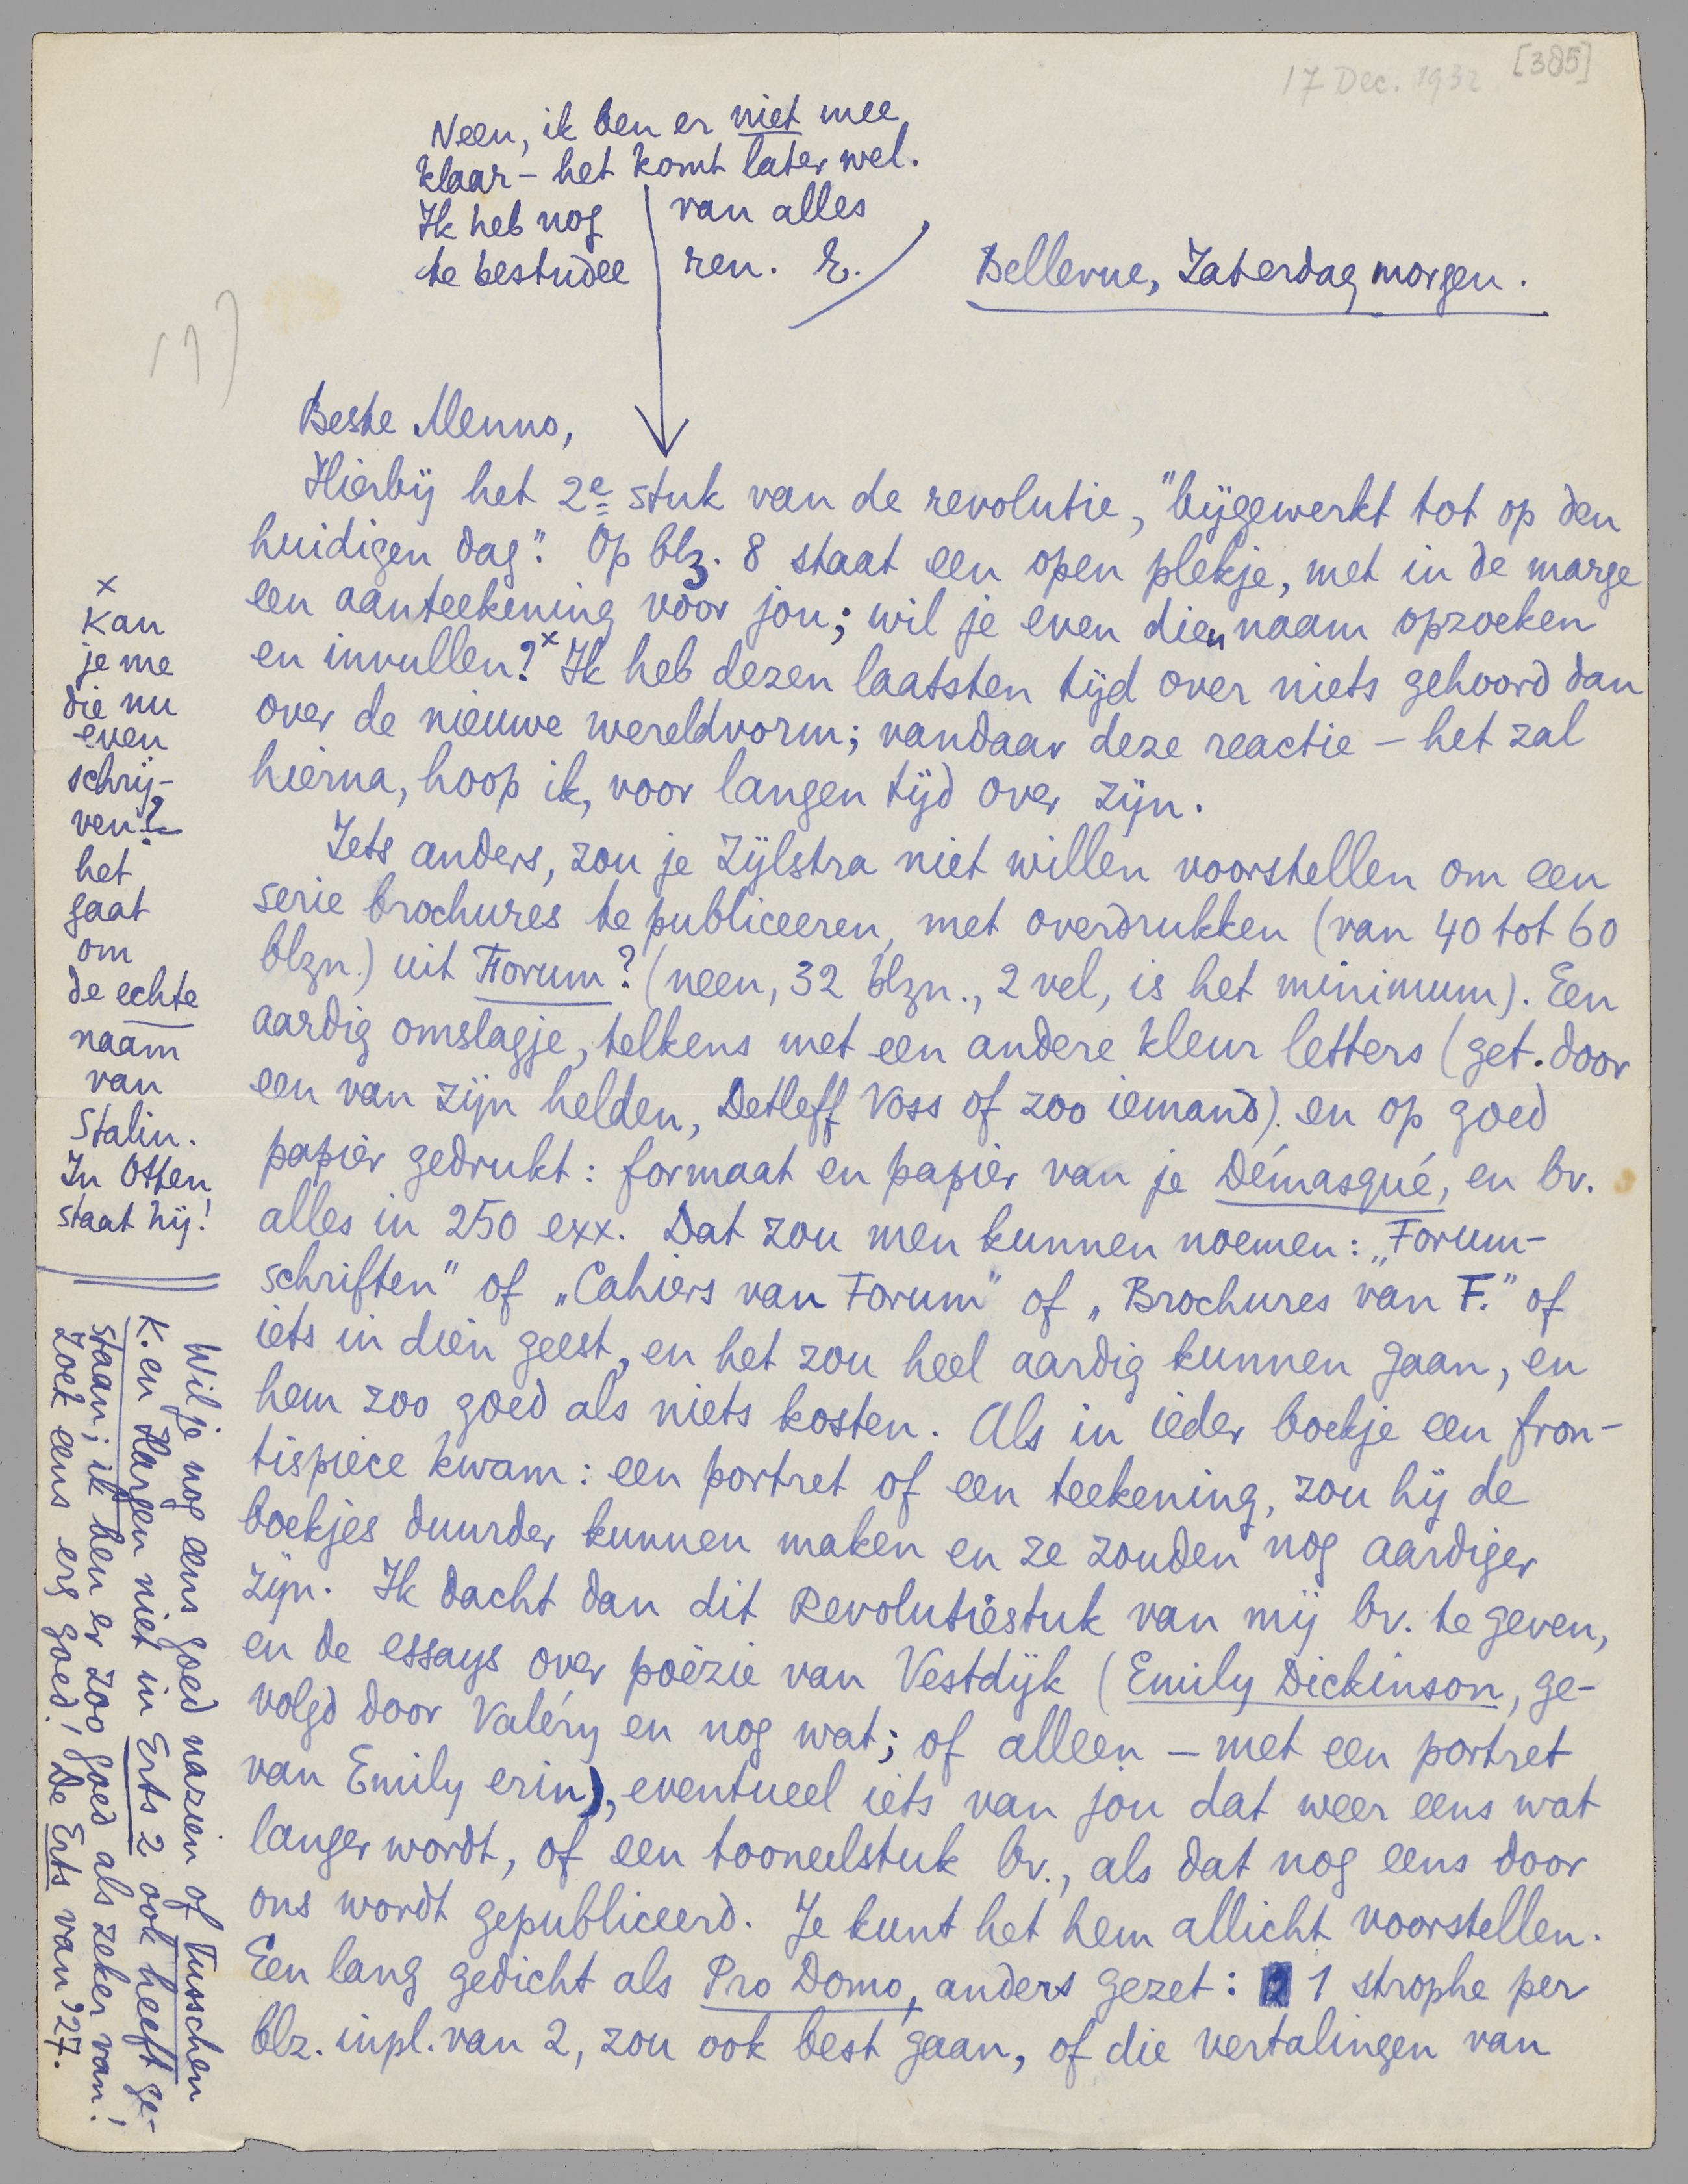 17 Dec. 1932 [385]
Neen, ik ben er niet mee
klaar – het komt later wel.
Ik heb nog van alles
te bestudee ren. E.
Bellevue, Zaterdagmorgen.
Beste Menno,
Hierbij het 2e stuk van de revolutie, "bijgewerkt tot op den
huidigen dag". Op blz. 8 staat een open plekje, met in de marge
een aanteekening voor jou; wil je even dien naam opzoeken
en invullen?x Ik heb dezen laatsten tijd over niets gehoord dan
over de nieuwe wereldvorm; vandaar deze reactie – het zal
hierna, hoop ik, voor langen tijd over zijn.
Iets anders, zou je Zijlstra niet willen voorstellen om een
serie brochures te publiceeren, met overdrukken (van 40 tot 60
blzn.) uit Forum? (neen, 32 blzn., 2 vel, is het minimum). Een
aardig omslagje, telkens met een andere kleur letters (get. door
een van zijn helden, Detleff Voss of zoo iemand). en op goed
papier gedrukt: formaat en papier van je Démasqué, en bv.
alles in 250 exx. Dat zou men kunnen noemen: „Forum-
schriften" of „Cahiers van Forum" of „Brochures van F." of
iets in dien geest, en het zou heel aardig kunnen gaan, en
hem zoo goed als niets kosten. Als in ieder boekje een fron-
tispiece kwam: een portret of een teekening, zou hij de
boekjes duurder kunnen maken en ze zouden nog aardiger
zijn. Ik dacht dan dit Revolutiestuk van mij bv. te geven,
en de essays over poëzie van Vestdijk (Emily Dickinson, ge-
volgd door Valéry en nog wat; of alleen – met een portret
van Emily erin), eventueel iets van jou dat weer eens wat
langer wordt, of een tooneelstuk bv., als dat nog eens door
ons wordt gepubliceerd. Je kunt het hem allicht voorstellen.
Een lang gedicht als Pro Domo, anders gezet: 1 strophe per
blz. inpl. van 2, zou ook best gaan, of die vertalingen van
x
Kan
je me
die nu
even
schrij-
ven?
het
gaat
om
de echte
naam
van
Stalin.
In Otten
staat hij!
Wil je nog eens goed nazien of Tusschen
K. en Hargen niet in Erts 2 ook heeft ge-
staan; ik ben er zoo goed als zeker van!
Zoek eens erg goed! De Erts van '27.